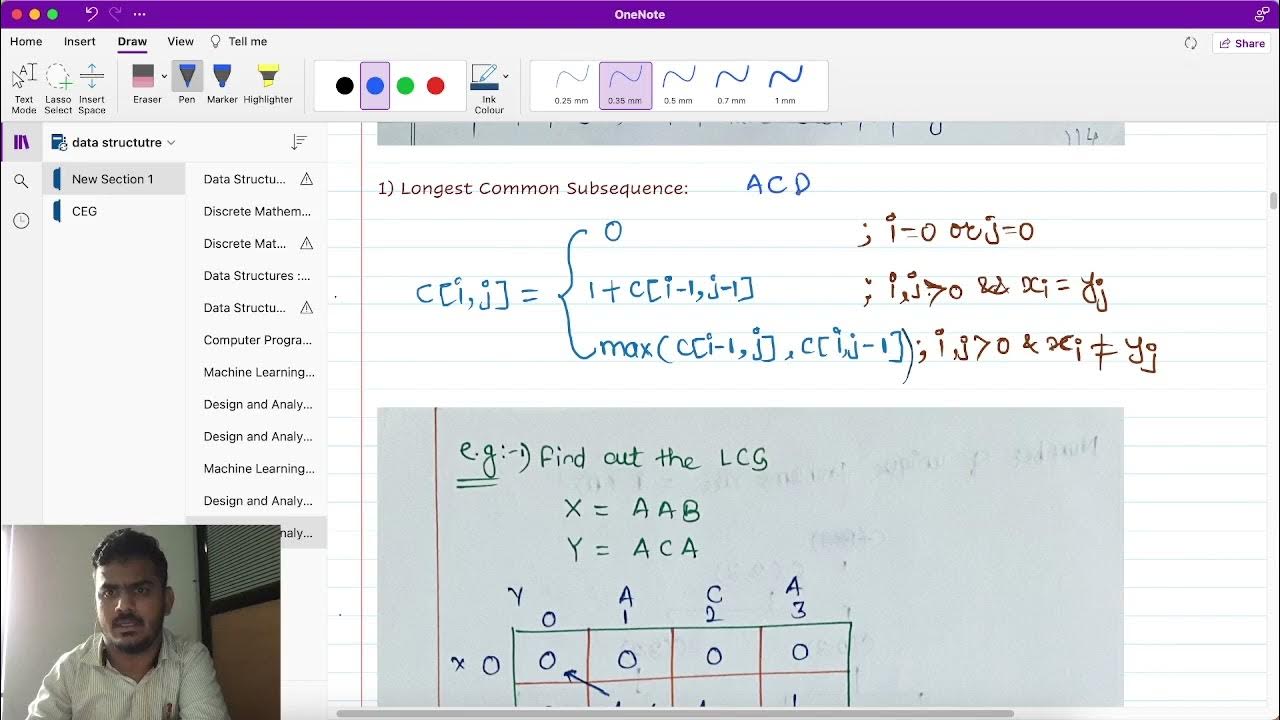 OneNote
Home Insert Draw View Tell me
Share
Text Mode
Lasso Select
Insert Space
Eraser
Pen
Marker
Highlighter
Ink Colour
0.25 mm
0.35 mm
0.5 mm
0.7 mm
1 mm
data structutre
New Section 1
CEG
Data Structu...
Discrete Mathem...
Discrete Mat...
Data Structures :...
Data Structu...
Computer Progra...
Machine Learning...
Design and Analy...
Design and Analy...
Machine Learning...
Design and Analy...
naly...
1) Longest Common Subsequence: ACD
C[i,j] =
0 ; i=0 or j=0
1+C[i-1,j-1] ; i,j>0 && xi = yj
max(C[i-1,j],C[i,j-1]); i,j>0 & xi ≠ yj
e.g:-1) Find out the LCS
X = AAB
Y = ACA
Y A C A
0 1 2 3
X 0 0 0 0 0